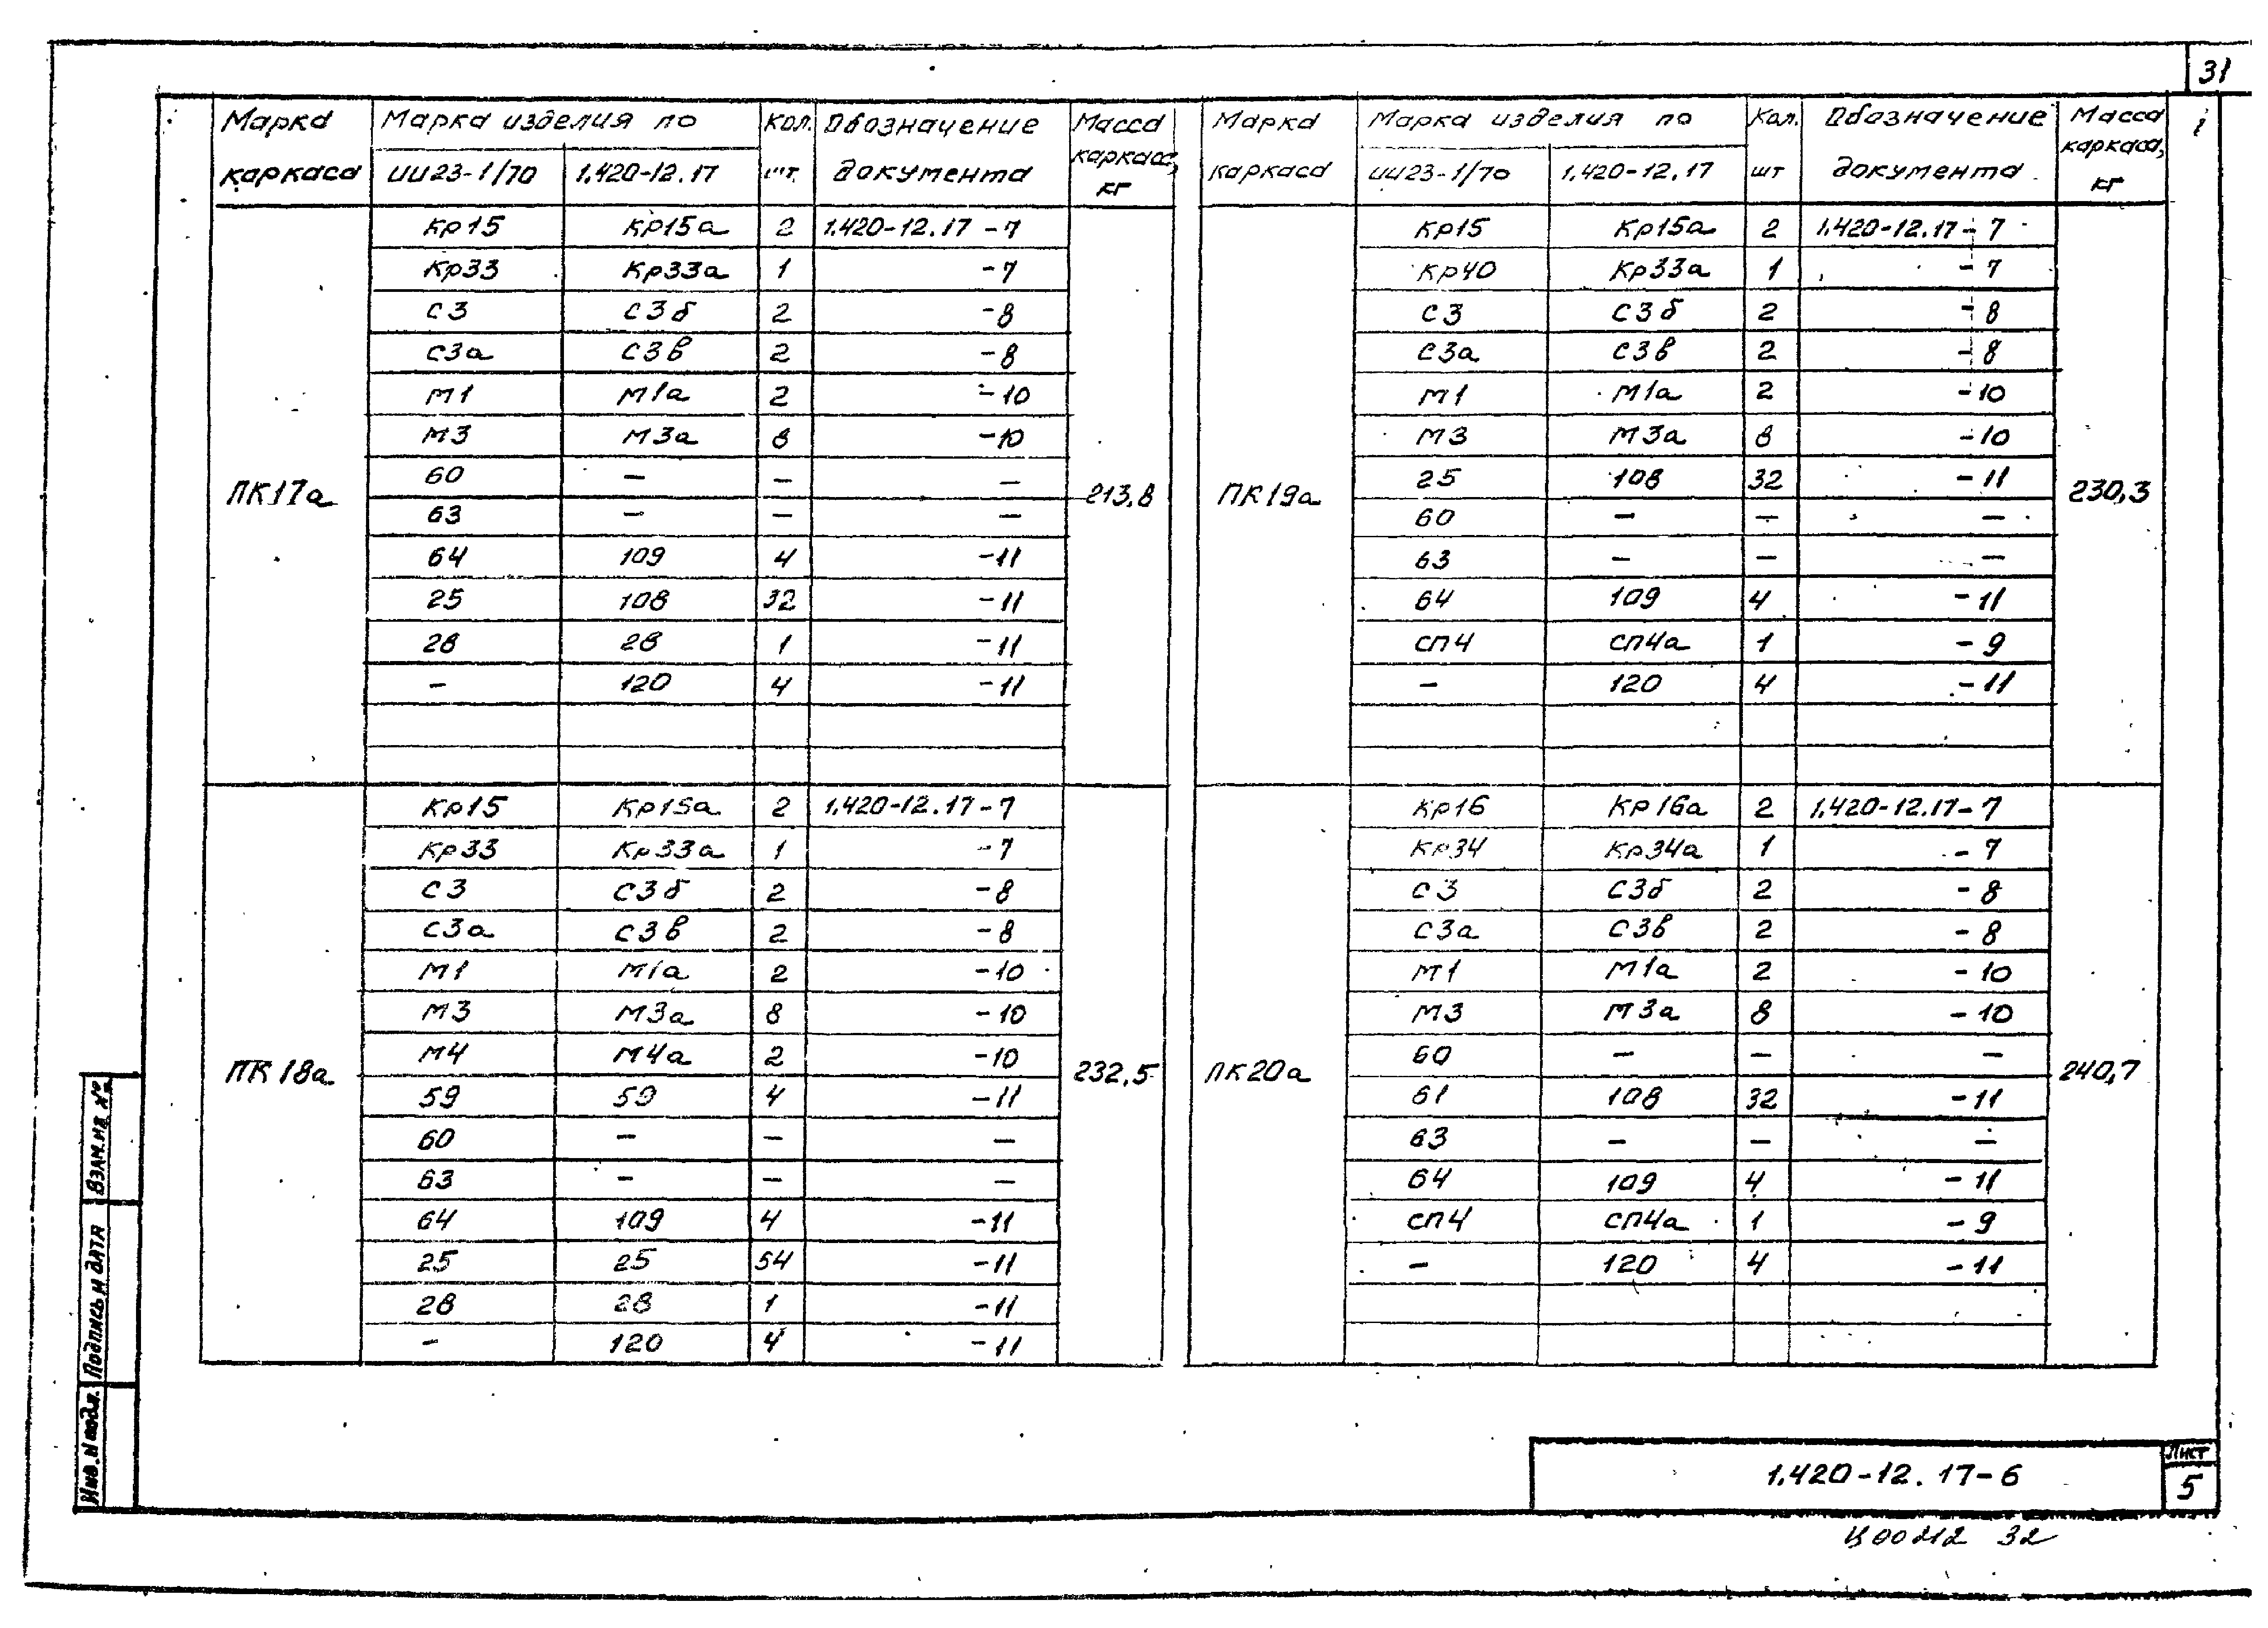 31
Марка каркаса | Марка изделия по | Кол. шт. | Обозначение документа | Масса каркаса, кг
ИИ23-1/70 | 1.420-12.17
ПК17а | 213,8
Кр15 | Кр15а | 2 | 1.420-12.17-7
Кр33 | Кр33а | 1 | -7
С3 | С3б | 2 | -8
С3а | С3в | 2 | -8
М1 | М1а | 2 | -10
М3 | М3а | 8 | -10
60 | – | – | –
63 | – | – | –
64 | 109 | 4 | -11
25 | 108 | 32 | -11
28 | 28 | 1 | -11
– | 120 | 4 | -11
ПК18а | 232,5
Кр15 | Кр15а | 2 | 1.420-12.17-7
Кр33 | Кр33а | 1 | -7
С3 | С3б | 2 | -8
С3а | С3в | 2 | -8
М1 | М1а | 2 | -10
М3 | М3а | 8 | -10
М4 | М4а | 2 | -10
59 | 59 | 4 | -11
60 | – | – | –
63 | – | – | –
64 | 109 | 4 | -11
25 | 25 | 54 | -11
28 | 28 | 1 | -11
– | 120 | 4 | -11
Марка каркаса | Марка изделия по | Кол. шт | Обозначение документа | Масса каркаса, кг
ИИ23-1/70 | 1.420-12.17
ПК19а | 230,3
Кр15 | Кр15а | 2 | 1.420-12.17-7
Кр40 | Кр33а | 1 | -7
С3 | С3б | 2 | -8
С3а | С3в | 2 | -8
М1 | М1а | 2 | -10
М3 | М3а | 8 | -10
25 | 108 | 32 | -11
60 | – | – | –
63 | – | – | –
64 | 109 | 4 | -11
СП4 | СП4а | 1 | -9
– | 120 | 4 | -11
ПК20а | 240,7
Кр16 | Кр16а | 2 | 1.420-12.17-7
Кр34 | Кр34а | 1 | -7
С3 | С3б | 2 | -8
С3а | С3в | 2 | -8
М1 | М1а | 2 | -10
М3 | М3а | 8 | -10
60 | – | – | –
61 | 108 | 32 | -11
63 | – | – | –
64 | 109 | 4 | -11
СП4 | СП4а | 1 | -9
– | 120 | 4 | -11
Инв.N подл. | Подпись и дата | Взам.инв №
1.420-12.17-6
Лист
5
Ц00212 32